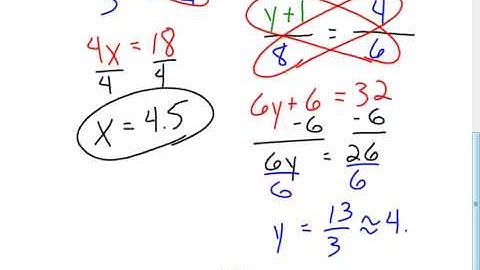 4x = 18
4 4
x = 4.5
y+1 = 4
8 6
6y+6 = 32
-6 -6
6y = 26
6 6
y = 13/3 ≈ 4.